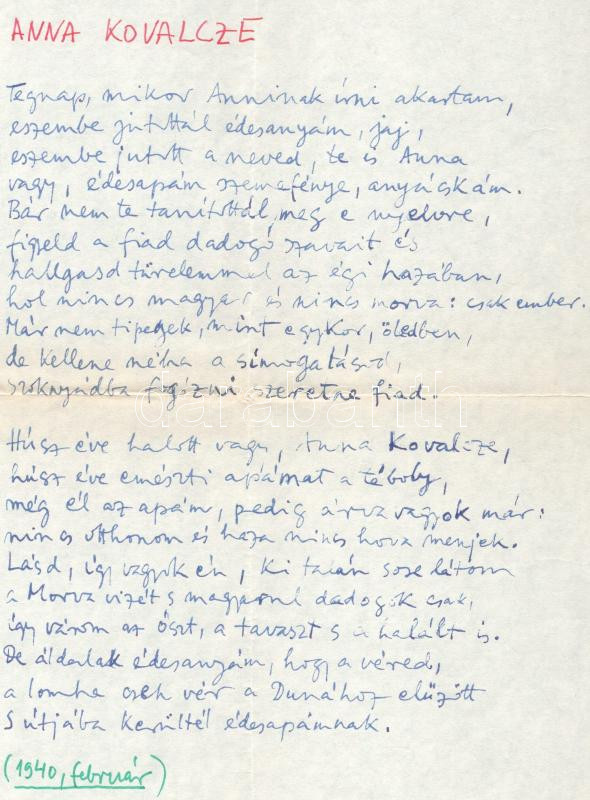 ANNA KOVALCZE
Tegnap, mikor Anninak írni akartam,
eszembe jutottál édesanyám, jaj,
eszembe jutott a neved, te is Anna
vagy, édesapám szemefénye, anyácskám.
Bár nem te tanítottál meg e nyelvre,
figyeld a fiad dadogó szavait és
hallgasd türelemmel az égi hazában,
hol nincs magyar és nincs morva: csak ember.
Már nem tipegek, mint egykor, öledben,
de kellene néha a simogatásod,
szoknyádba fogózni szeretne fiad.
Húsz éve halott vagy, Anna Kovalcze,
húsz éve emészti apámat a téboly,
még él az apám, pedig árva vagyok már:
nincs otthonom és haza nincs hova menjek.
Lásd, így vagyok én, ki talán sose látom
a Morva vizét s magyarul dadogok csak,
így várom az őszt, a tavaszt s a halált is.
De áldalak édesanyám, hogy a véred,
a lomha cseh vér a Dunához elűzött
S útjába kerültél édesapámnak.
(1940, február)
darabanth